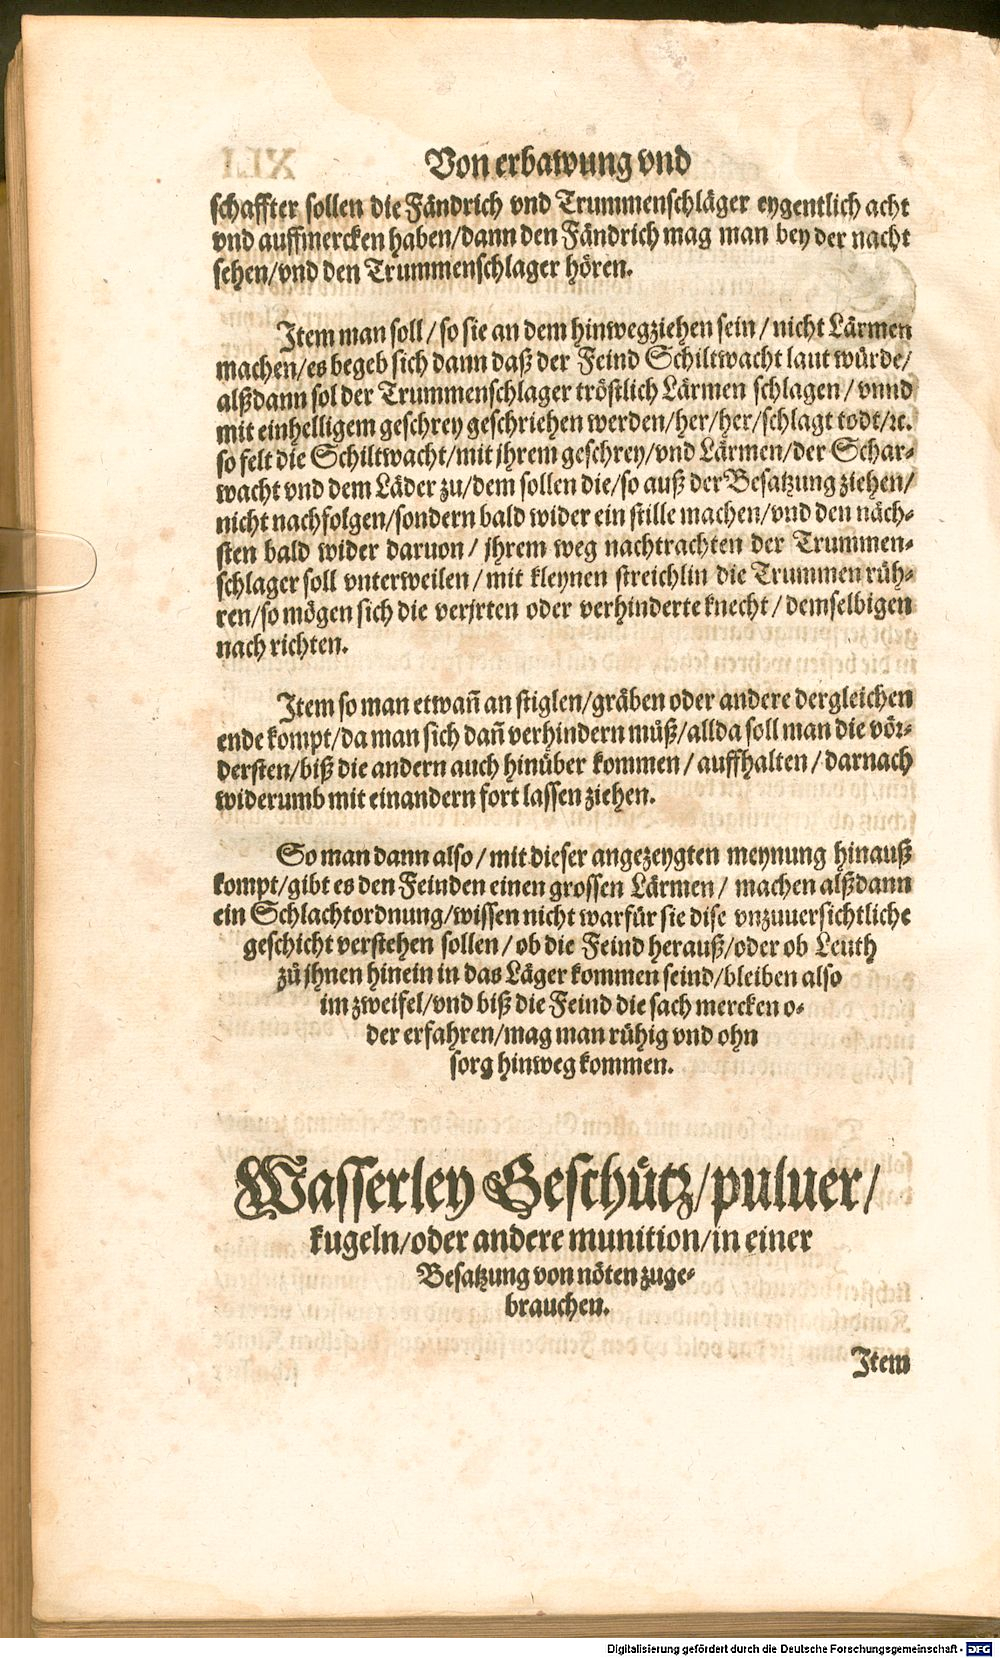 Von erbawung vnd
schaffter sollen die Fändrich vnd Trummenschläger eygentlich acht
vnd auffmercken haben/dann den Fändrich mag man bey der nacht
sehen/vnd den Trummenschlager hören.
Item man soll/so sie an dem hinwegziehen sein/nicht Lärmen
machen/es begeb sich dann daß der Feind Schiltwacht laut würde/
alßdann sol der Trummenschlager tröstlich Lärmen schlagen/vnnd
mit einhelligem geschrey geschriehen werden/her/her/schlagt todt/ꝛc.
so felt die Schiltwacht/mit jhrem geschrey/vnd Lärmen/der Schar⸗
wacht vnd dem Läder zu/dem sollen die/so auß der Besatzung ziehen/
nicht nachfolgen/sondern bald wider ein stille machen/vnd den näch⸗
sten bald wider daruon/jhrem weg nachtrachten der Trummen⸗
schlager soll vnterweilen/mit kleynen streichlin die Trummen rüh⸗
ren/so mögen sich die verjrten oder verhinderte knecht/demselbigen
nach richten.
Item so man etwañ an stiglen/gräben oder andere dergleichen
ende kompt/da man sich dañ verhindern můß/allda soll man die vör⸗
dersten/biß die andern auch hinüber kommen/auffhalten/darnach
widerumb mit einandern fort lassen ziehen.
So man dann also/mit dieser angezeygten meynung hinauß
kompt/gibt es den Feinden einen grossen Lärmen/machen alßdann
ein Schlachtordnung/wissen nicht warfür sie dise vnzuuersichtliche
geschicht verstehen sollen/ob die Feind herauß/oder ob Leuth
zů jhnen hinein in das Läger kommen seind/bleiben also
im zweifel/vnd biß die Feind die sach mercken o⸗
der erfahren/mag man rühig vnd ohn
sorg hinweg kommen.
Wasserley Geschütz/puluer/
kugeln/oder andere munition/in einer
Besatzung von nöten zuge⸗
brauchen.
Item
Digitalisierung gefördert durch die Deutsche Forschungsgemeinschaft - DFG